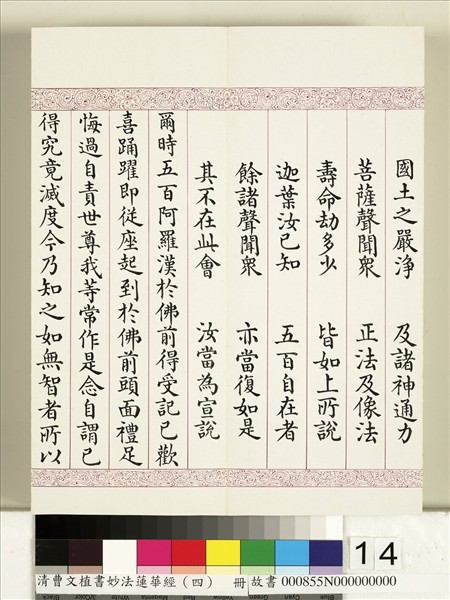 國土之嚴淨　及諸神通力
菩薩聲聞衆　正法及像法
壽命劫多少　皆如上所說
迦葉汝已知　五百自在者
餘諸聲聞衆　亦當復如是
其不在此會　汝當為宣說
爾時五百阿羅漢於佛前得受記已歡
喜踊躍即從座起到於佛前頭面禮足
悔過自責世尊我等常作是念自謂已
得究竟滅度今乃知之如無智者所以
14
清曹文植書妙法蓮華經（四）　冊 故書 000855N000000000